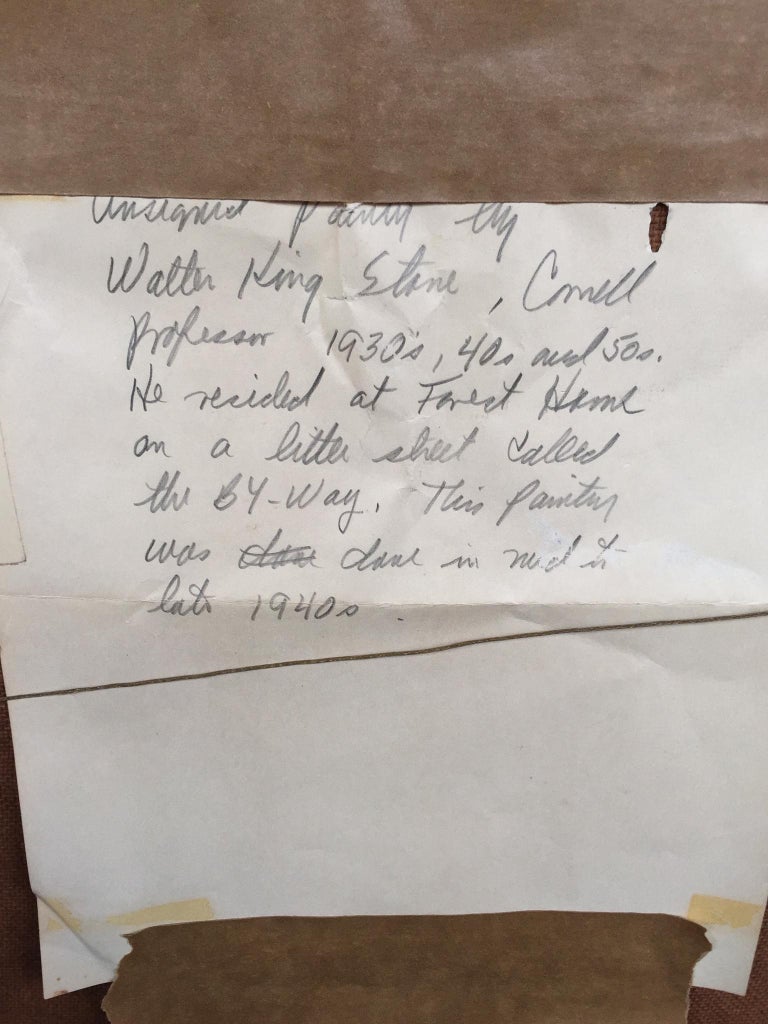 Unsigned Painting by
Walter King Stone, Cornell
Professor 1930's, 40s and 50s.
He resided at Forest Home
on a little street called
the BY-Way. This painting
was done done in mid to
late 1940s.